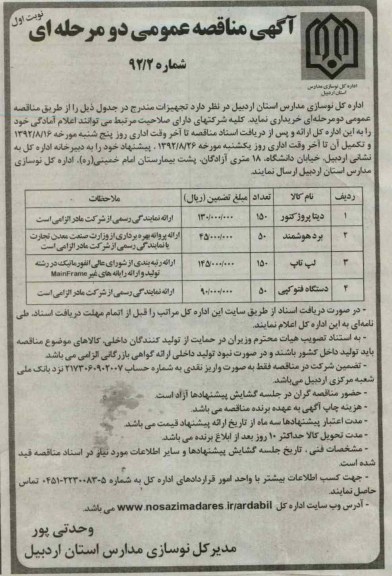 نوبت اول
آگهی مناقصه عمومی دو مرحله ای
شماره ۹۲/۲
اداره کل نوسازی مدارس
استان اردبیل
اداره کل نوسازی مدارس استان اردبیل در نظر دارد تجهیزات مندرج در جدول ذیل را از طریق مناقصه
عمومی دو مرحله‌ای خریداری نماید. کلیه شرکتهای دارای صلاحیت مرتبط می توانند اعلام آمادگی خود
را به این اداره کل ارائه و پس از دریافت اسناد مناقصه تا آخر وقت اداری روز پنج شنبه مورخه ۱۳۹۲/۸/۱۶
و تکمیل آن تا آخر وقت اداری روز یکشنبه مورخه ۱۳۹۲/۸/۲۶ ، پیشنهاد خود را به دبیرخانه اداره کل به
نشانی اردبیل، خیابان دانشگاه، ۱۸ متری آزادگان، پشت بیمارستان امام خمینی(ره)، اداره کل نوسازی
مدارس استان اردبیل ارسال نمایند.
ردیف نام کالا تعداد مبلغ تضمین (ریال) ملاحظات
۱ دیتا پروژکتور ۱۵۰ ۱۳۰/۰۰۰/۰۰۰ ارائه نمایندگی رسمی از شرکت مادر الزامی است
۲ برد هوشمند ۵۰ ۴۵/۰۰۰/۰۰۰ ارائه پروانه بهره برداری از وزارت صنعت معدن تجارت
یا نمایندگی رسمی از شرکت مادر الزامی است
۳ لپ تاپ ۱۵۰ ۱۴۵/۰۰۰/۰۰۰ ارائه رتبه بندی از شورای عالی انفورماتیک در رشته
تولید و ارائه رایانه های غیر MainFrame
۴ دستگاه فتوکپی ۵۰ ۹۰/۰۰۰/۰۰۰ ارائه نمایندگی رسمی از شرکت مادر الزامی است
- در صورت دریافت اسناد از طریق سایت این اداره کل مراتب را قبل از اتمام مهلت دریافت اسناد، طی
نامه‌ای به این اداره کل اعلام نمایند.
- به استناد تصویب هیات محترم وزیران در حمایت از تولید کنندگان داخلی، کالاهای موضوع مناقصه
باید تولید داخل کشور باشند و در صورت نبود تولید داخلی ارائه گواهی بازرگانی الزامی می باشد.
- تضمین شرکت در مناقصه فقط به صورت واریز نقدی به شماره حساب ۲۱۷۳۰۶۰۹۰۲۰۰۷ نزد بانک ملی
شعبه مرکزی اردبیل می‌باشد.
- حضور مناقصه گران در جلسه گشایش پیشنهادها آزاد است.
- هزینه چاپ آگهی به عهده برنده مناقصه می‌باشد.
- مدت اعتبار پیشنهادها سه ماه از تاریخ ارائه پیشنهاد قیمت می باشد.
- مدت تحویل کالا حداکثر ۱۰ روز بعد از ابلاغ برنده می باشد.
- مشخصات فنی ، تاریخ جلسه گشایش پیشنهادها و سایر اطلاعات مورد نیاز در اسناد مناقصه قید
شده است.
- جهت کسب اطلاعات بیشتر با واحد امور قراردادهای اداره کل به شماره ۵-۲۲۳۰۰۸۳-۰۴۵۱ تماس
حاصل نمایند.
- آدرس وب سایت اداره کل www.nosazimadares.ir/ardabil می باشد.
وحدتی پور
مدیرکل نوسازی مدارس استان اردبیل